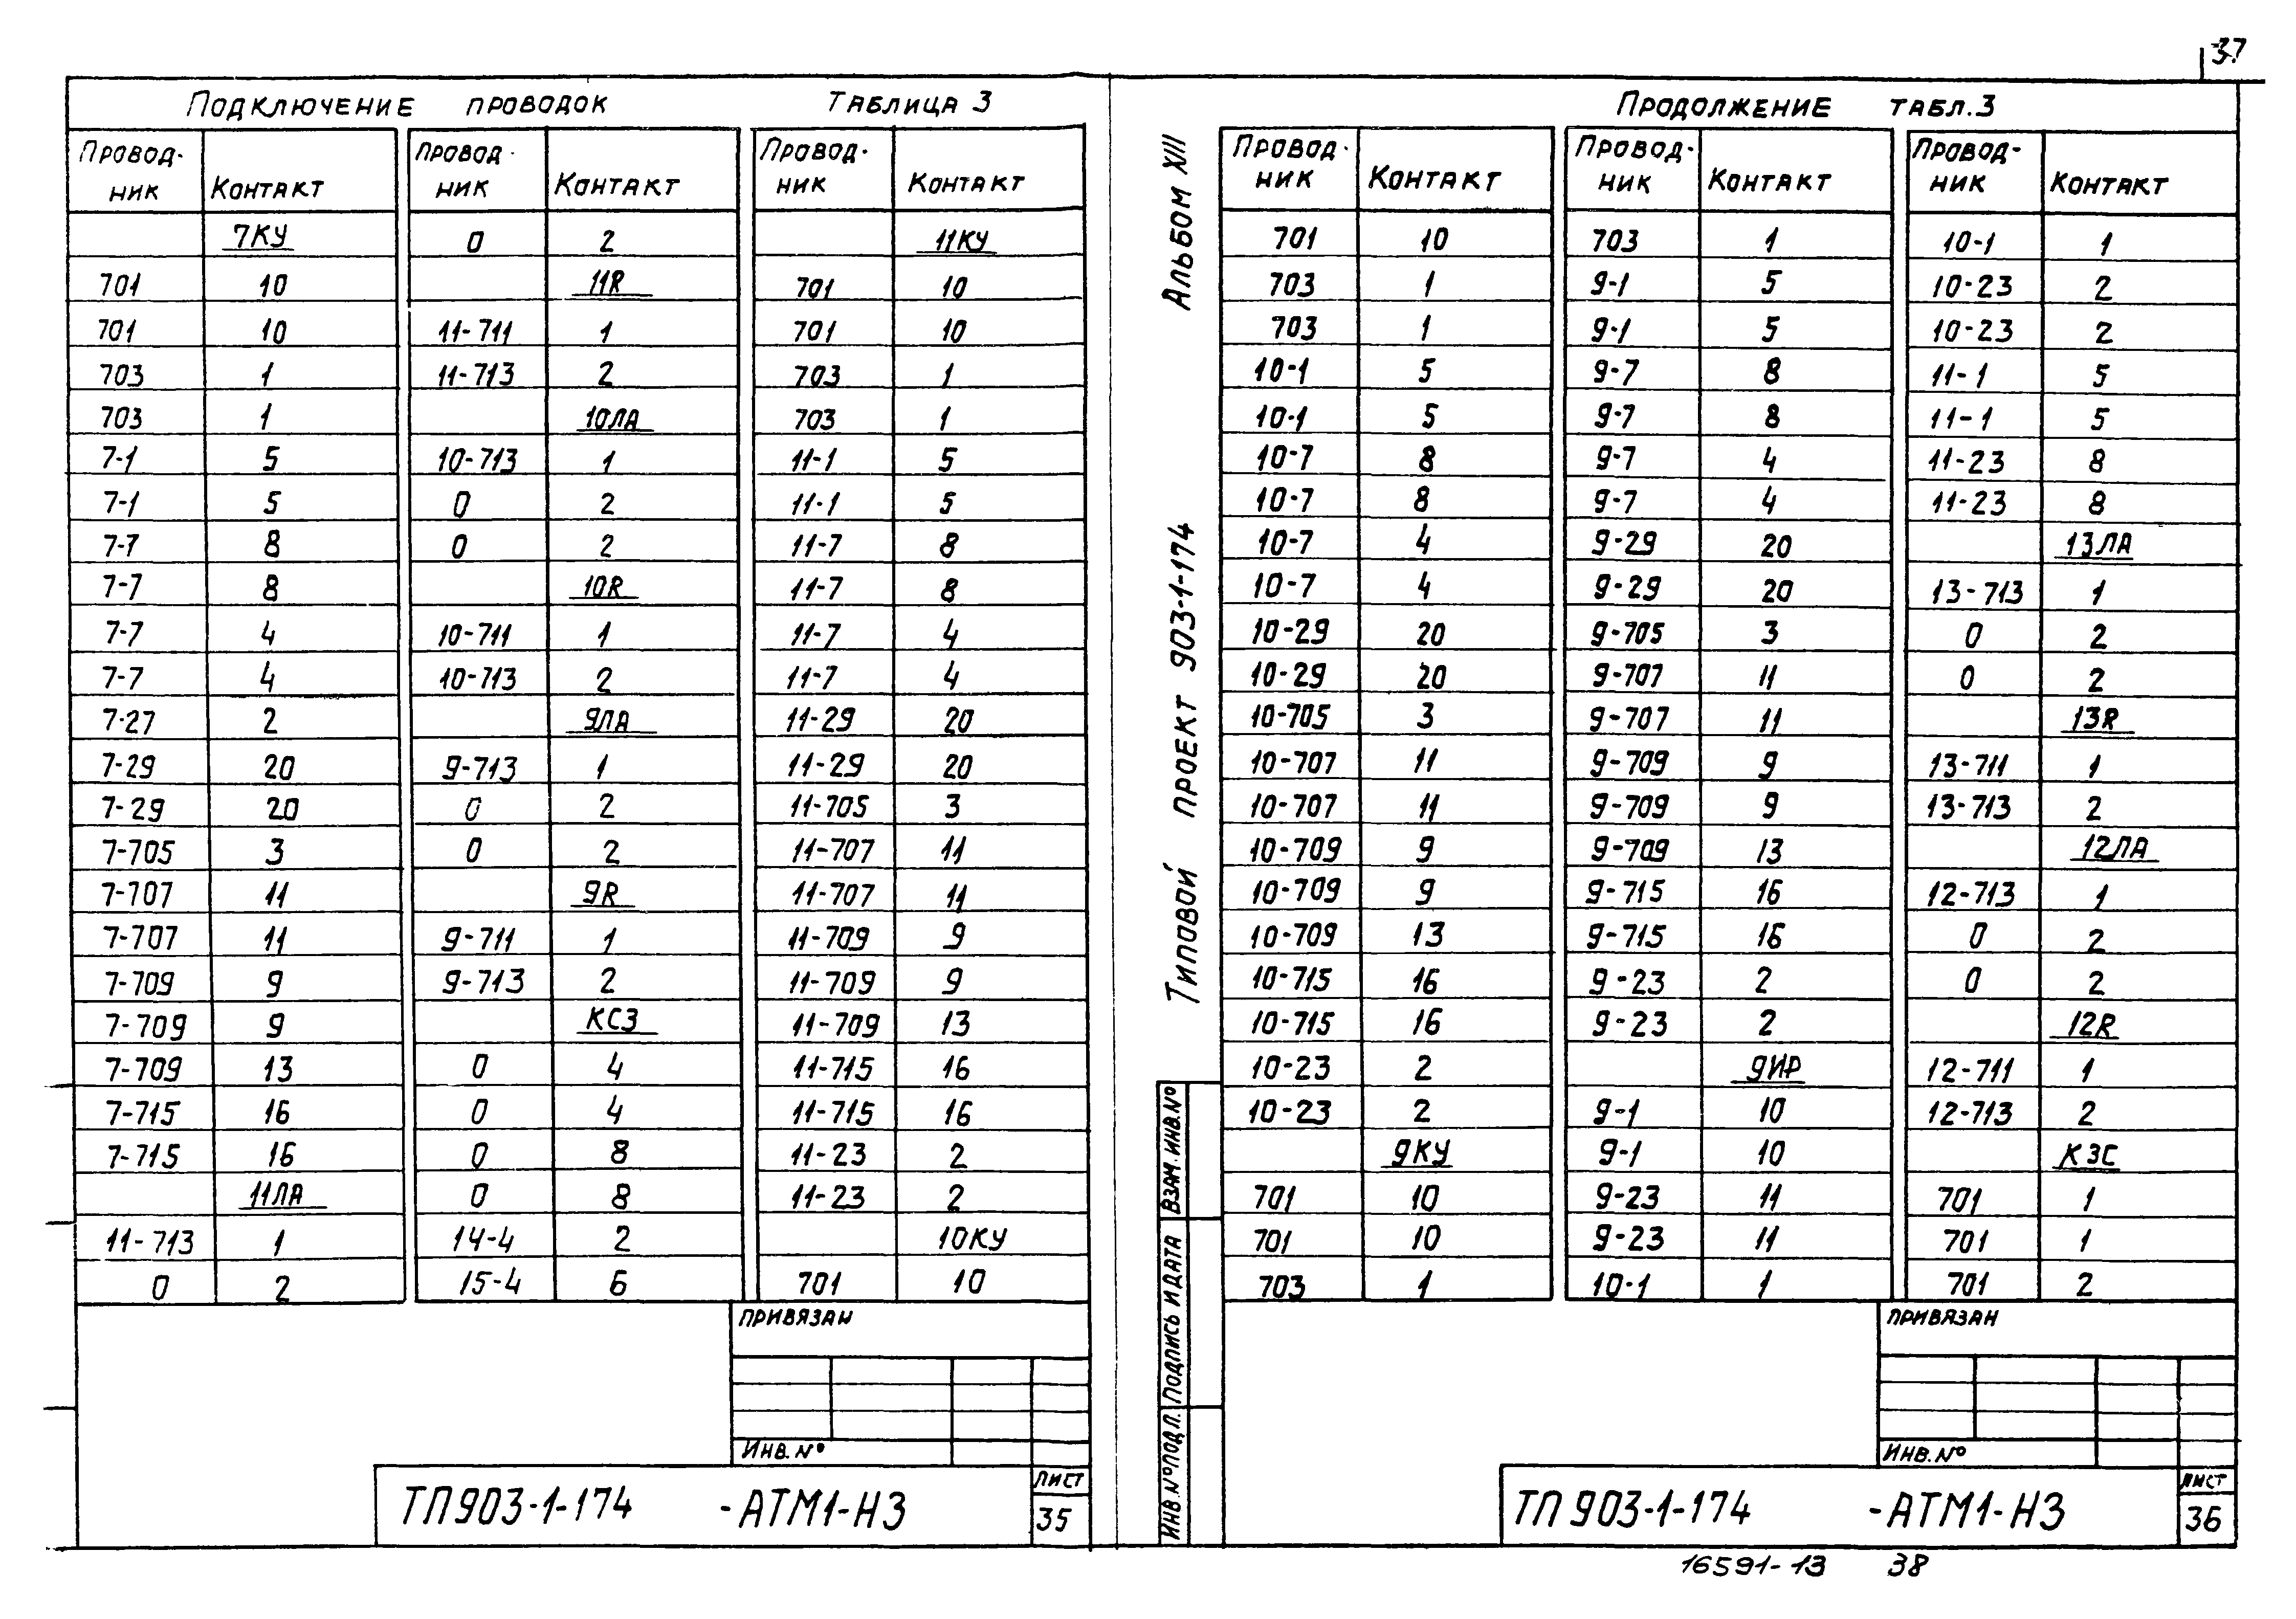 37
Подключение проводок Таблица 3
Провод- Контакт Провод- Контакт Провод- Контакт
ник ник ник
7КУ 0 2 11КУ
701 10 11R 701 10
701 10 11-711 1 701 10
703 1 11-713 2 703 1
703 1 10ЛА 703 1
7-1 5 10-713 1 11-1 5
7-1 5 0 2 11-1 5
7-7 8 0 2 11-7 8
7-7 8 10R 11-7 8
7-7 4 10-711 1 11-7 4
7-7 4 10-713 2 11-7 4
7-27 2 9ЛА 11-29 20
7-29 20 9-713 1 11-29 20
7-29 20 0 2 11-705 3
7-705 3 0 2 11-707 11
7-707 11 9R 11-707 11
7-707 11 9-711 1 11-709 9
7-709 9 9-713 2 11-709 9
7-709 9 КСЗ 11-709 13
7-709 13 0 4 11-715 16
7-715 16 0 4 11-715 16
7-715 16 0 8 11-23 2
11ЛА 0 8 11-23 2
11-713 1 14-4 2 10КУ
0 2 15-4 6 701 10
Привязан
Инв. №
ТП 903-1-174 -АТМ1-Н3
Лист
35
Альбом XIII
Типовой проект 903-1-174
Взам. инв. №
Подпись и дата
Инв. № подл.
Продолжение табл. 3
Провод- Контакт Провод- Контакт Провод- Контакт
ник ник ник
701 10 703 1 10-1 1
703 1 9-1 5 10-23 2
703 1 9-1 5 10-23 2
10-1 5 9-7 8 11-1 5
10-1 5 9-7 8 11-1 5
10-7 8 9-7 4 11-23 8
10-7 8 9-7 4 11-23 8
10-7 4 9-29 20 13ЛА
10-7 4 9-29 20 13-713 1
10-29 20 9-705 3 0 2
10-29 20 9-707 11 0 2
10-705 3 9-707 11 13R
10-707 11 9-709 9 13-711 1
10-707 11 9-709 9 13-713 2
10-709 9 9-709 13 12ЛА
10-709 9 9-715 16 12-713 1
10-709 13 9-715 16 0 2
10-715 16 9-23 2 0 2
10-715 16 9-23 2 12R
10-23 2 9ИР 12-711 1
10-23 2 9-1 10 12-713 2
9КУ 9-1 10 КЗС
701 10 9-23 11 701 1
701 10 9-23 11 701 1
703 1 10-1 1 701 2
Привязан
Инв. №
ТП 903-1-174 -АТМ1-Н3
Лист
36
16591-13 38